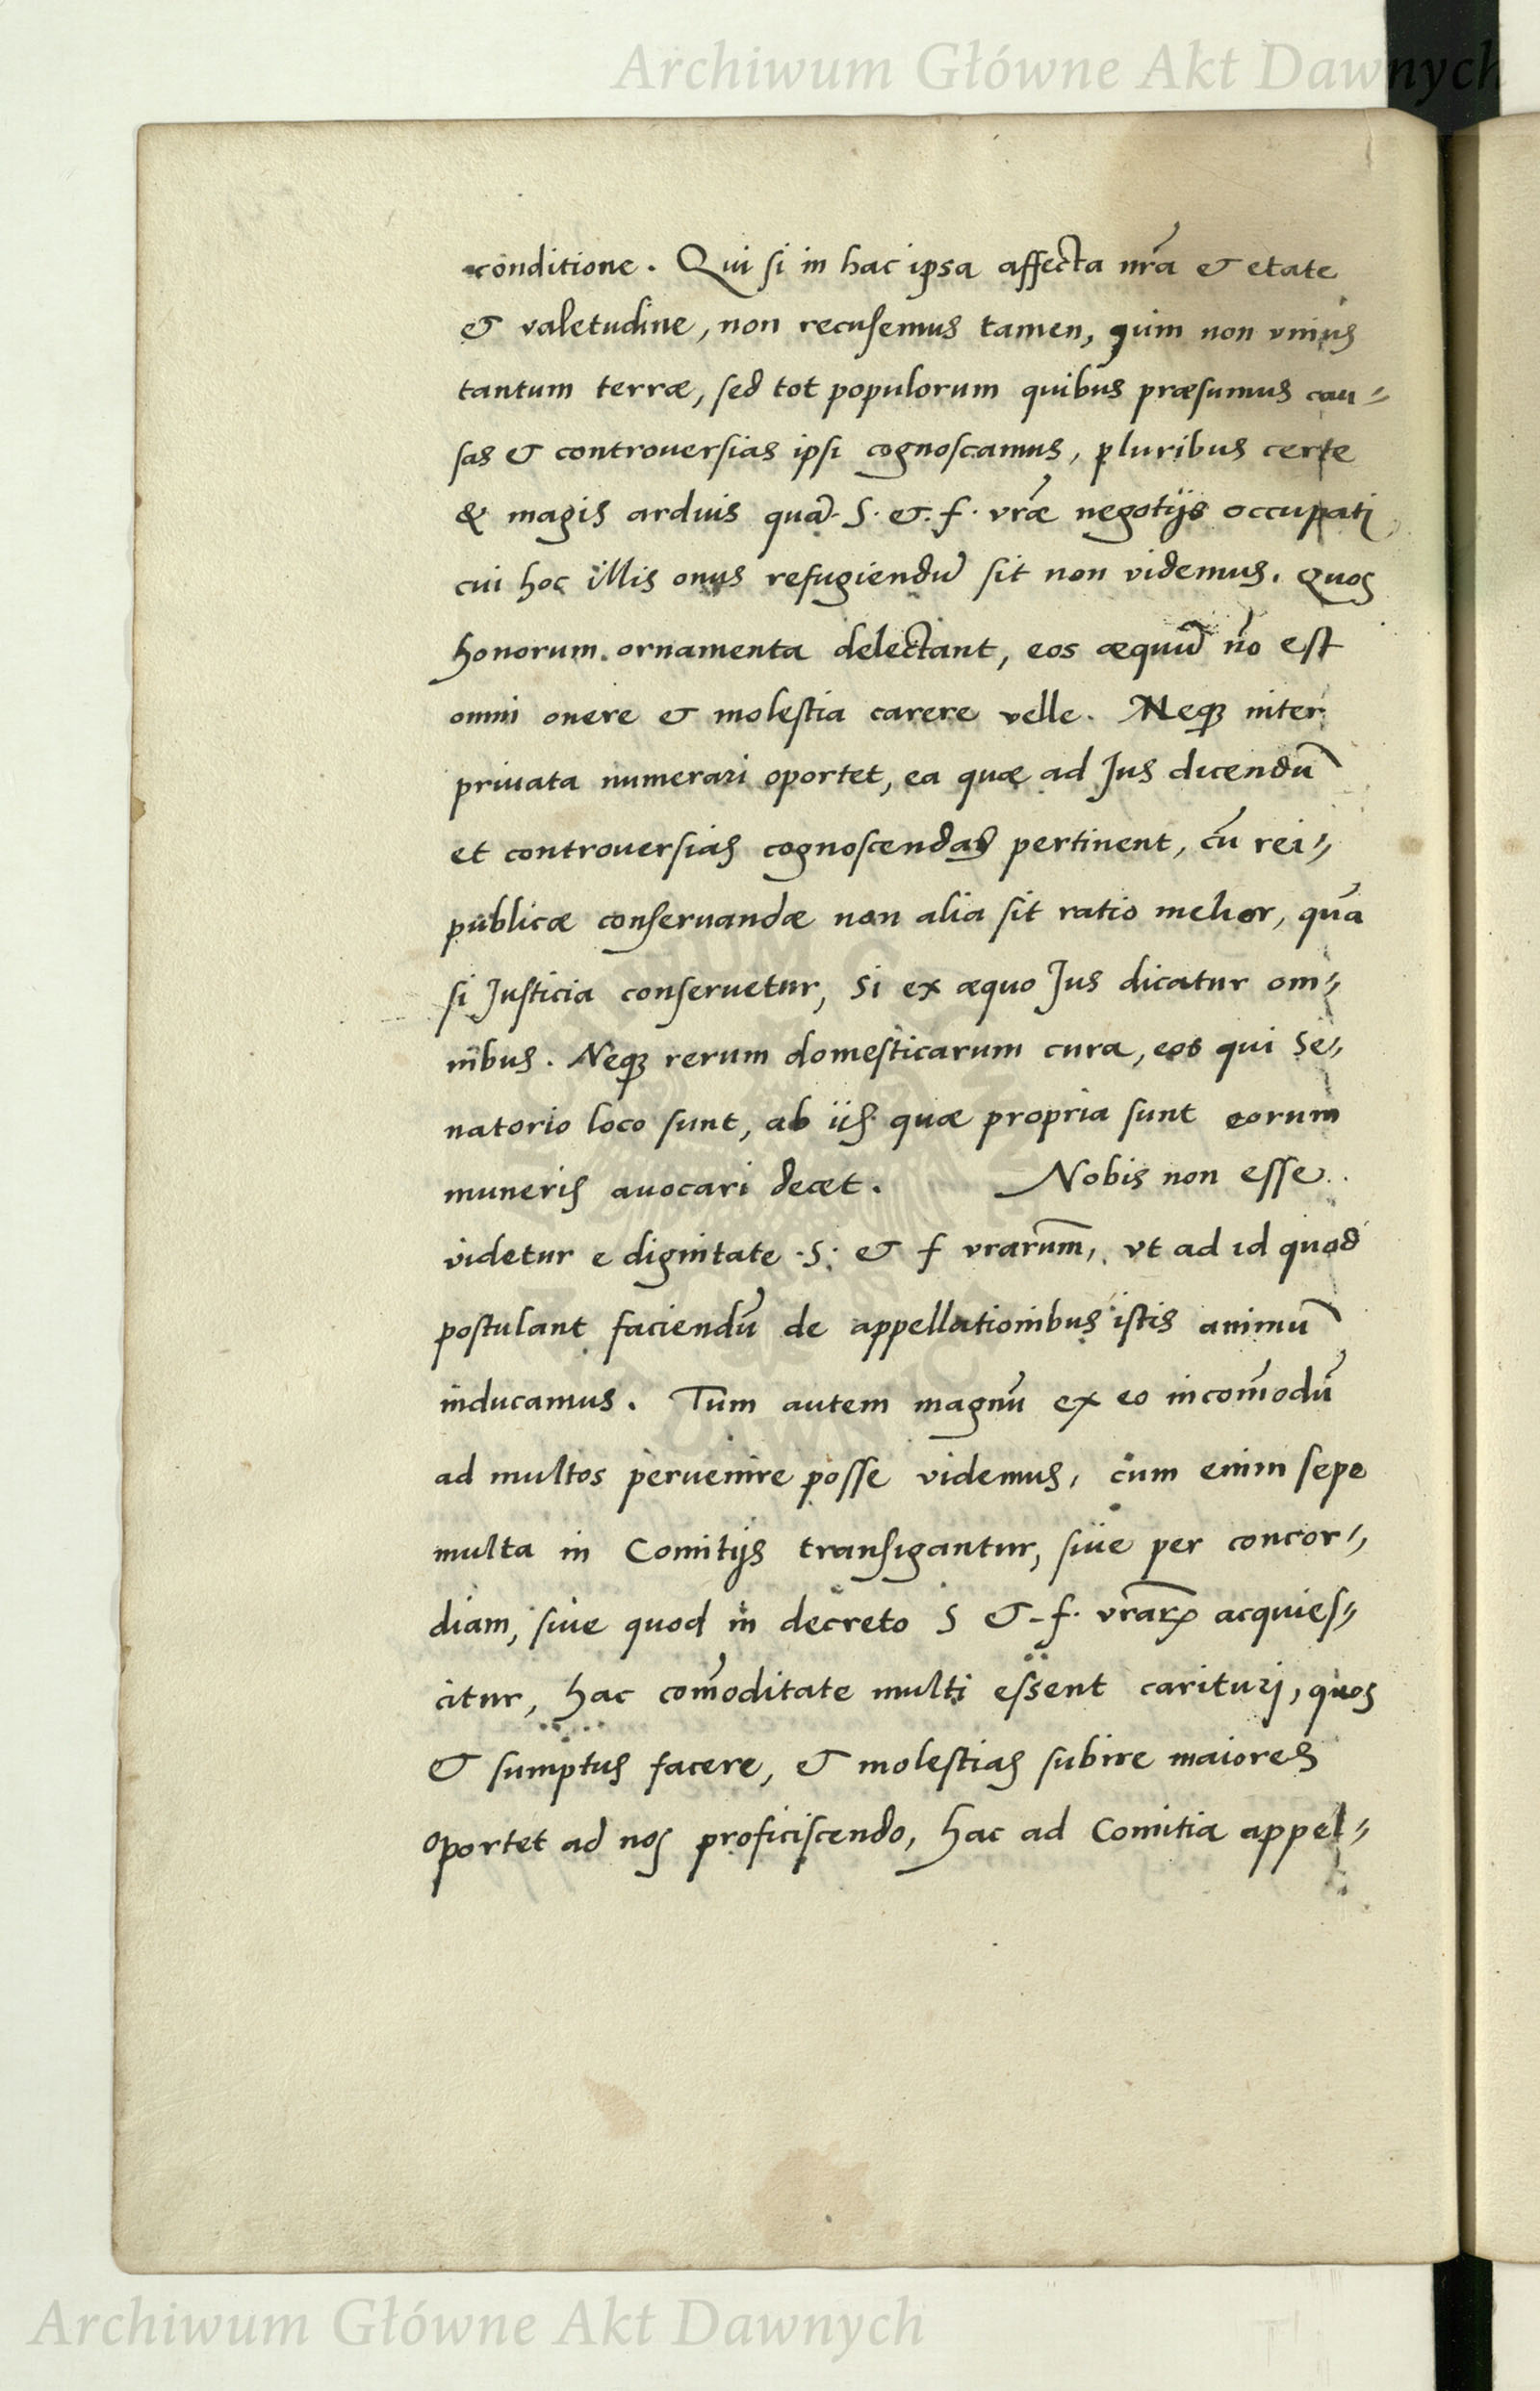 Archiwum Główne Akt Dawnych
conditione. Qui si in hac ipsa affecta nr̃a & etate
& valetudine, non recusemus tamen, quin non vnius
tantum terræ, sed tot populorum quibus præsumus cau-
sas & controuersias ipsi cognoscamus, pluribus certe
& magis arduis quã S. &. f. vr̃æ negotijs occupati
cui hoc illis onus refugiendũ sit non videmus. Quos
honorum ornamenta delectant, eos æquũ nõ est
omni onere & molestia carere velle. Neqȝ inter
priuata numerari oportet, ea quæ ad Jus dicendũ
et controuersias cognoscendas pertinent, cũ rei-
publicæ conseruandæ non alia sit ratio melior, quã
si Justicia conseruetur, si ex æquo Jus dicatur om-
nibus. Neqȝ rerum domesticarum cura, eos qui Se-
natorio loco sunt, ab ijs quæ propria sunt eorum
muneris auocari decet. Nobis non esse
videtur e dignitate S. & f vrarũm, vt ad id quod
postulant faciendũ de appellationibus istis animũ
inducamus. Tum autem magnũ ex eo incom̃odũ
ad multos peruenire posse videmus, cum enim sepe
multa in Comitijs transigantur, siue per concor-
diam, siue quod in decreto S &. f. vr̃arꝝ acquies-
citur, hac com̃oditate multi essent carituri, quos
& sumptus facere, & molestias subire maiores
oportet ad nos proficiscendo, hac ad Comitia appel-
Archiwum Główne Akt Dawnych